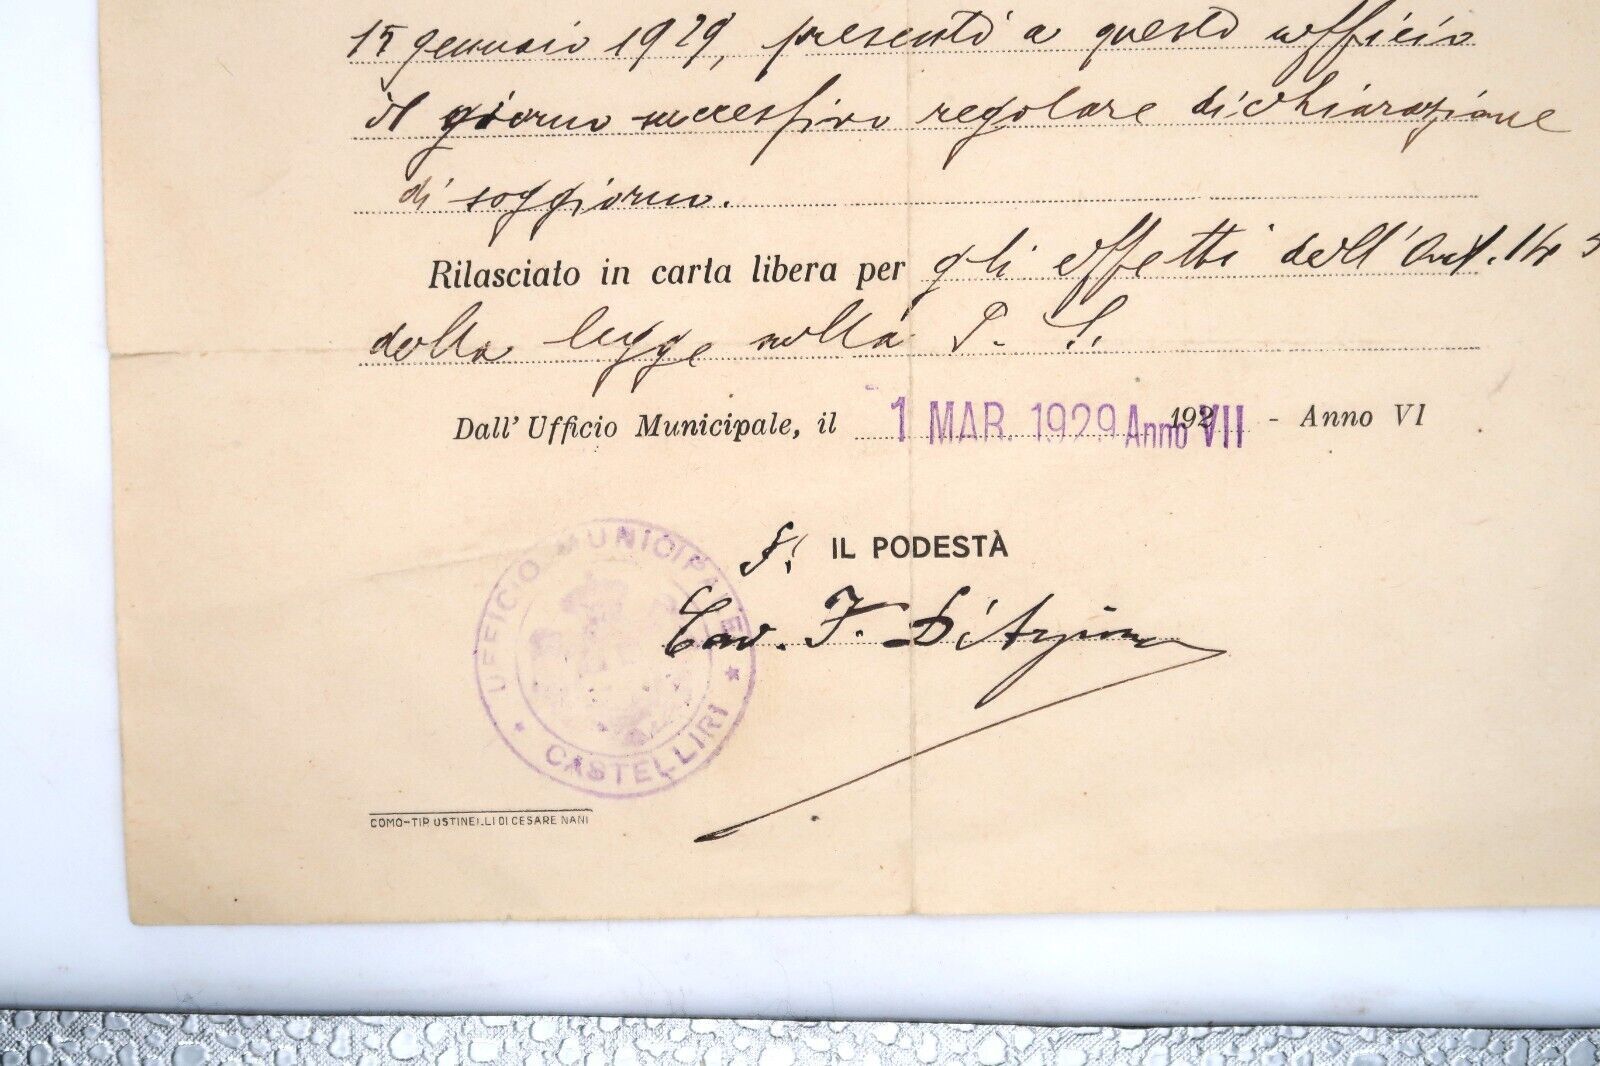 15 gennaio 1929, presentò a questo ufficio
il giorno successivo regolare dichiarazione
di soggiorno.
Rilasciato in carta libera per gli effetti dell'Art. 14
della legge sulla P. S.
Dall' Ufficio Municipale, il 1 MAR. 1929 Anno VII 192 - Anno VI
F. IL PODESTÀ
Cav. F.
UFFICIO MUNICIPALE
* CASTELLIRI *
COMO-TIP. USTINELLI DI CESARE NANI